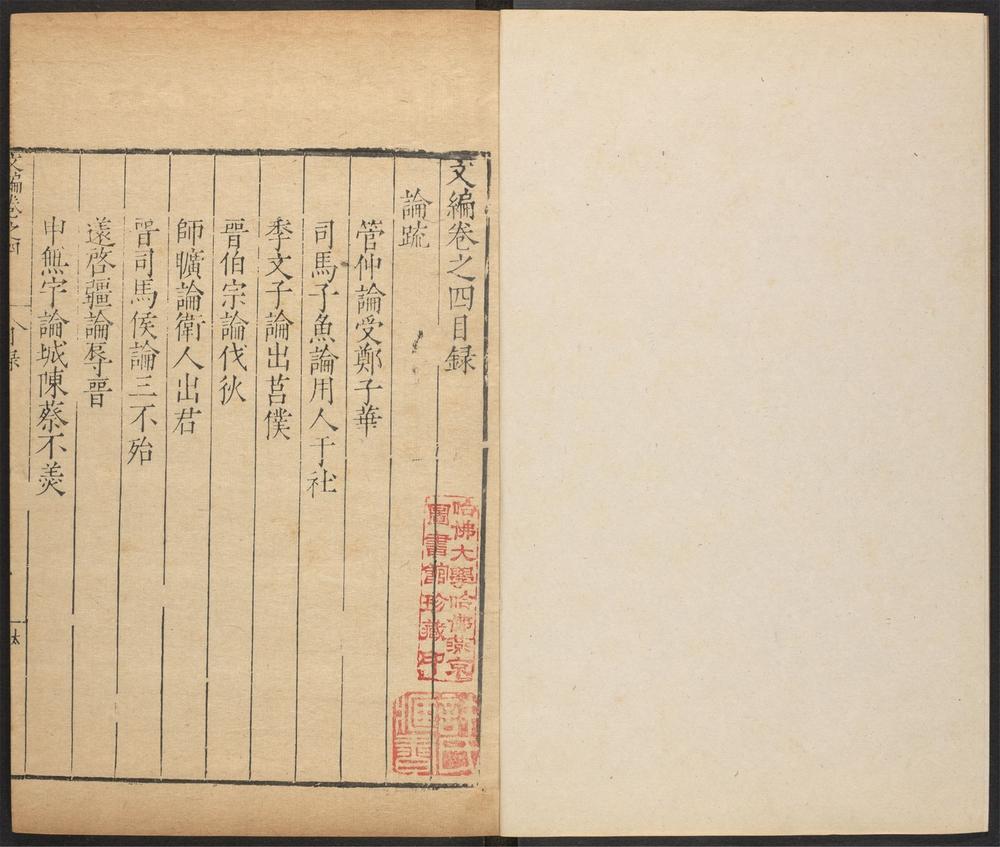 文編卷之四目録
論疏
管仲論受鄭子華
司馬子魚論用人于社
季文子論出莒僕
晉伯宗論伐狄
師曠論衛人出君
晉司馬侯論三不殆
薳啓疆論辱晉
申無宇論城陳蔡不羨
文編卷之四
目録
哈佛大學哈佛燕京
圖書館珍藏印